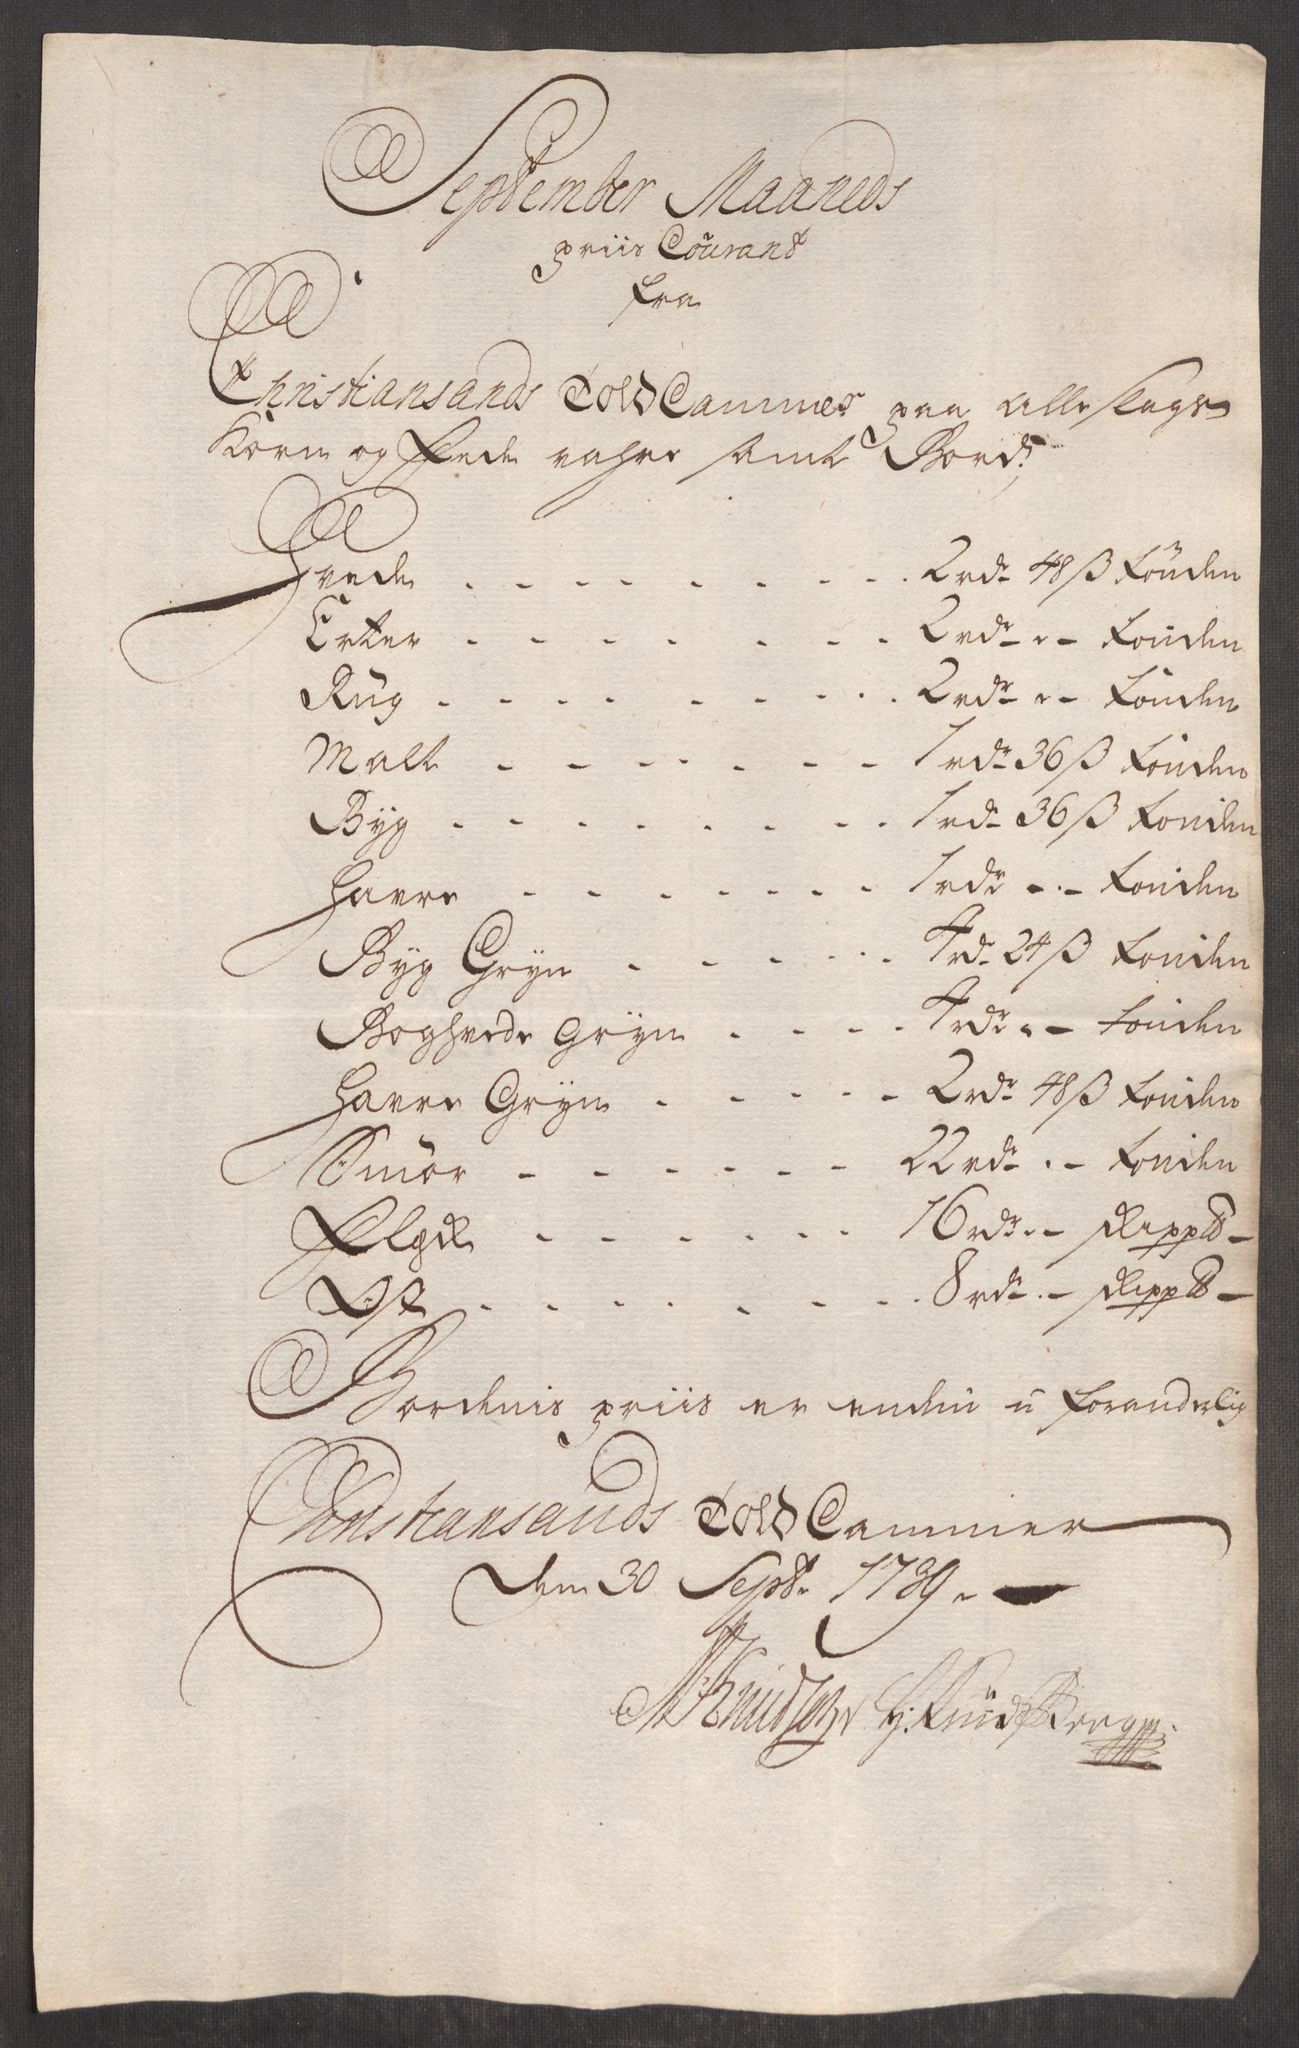 September Maaneds
priis Coürant
fra
Christiansands Told Cammer paa alle slags
Korn og Fede vahre samt Bord:
Hvede 2 rdr 48 ß tönden
Erter 2 rdr - tönden
Rüg 2 rdr - tönden
Malt 1 rdr 36 ß tönden
Byg 1 rd 36 ß tonden
Havre 1 rdr - tonden
Byg Gryn 4 rd 24 ß tonden
Boghvede Gryn 4 rdr - tonden
Havre Gryn 2 rdr 48 ß tonden
Smör 22 rdr - tonden
Flesk 16 rdr - skippd
Ost 8 rdr - skippd
Bordenis priis er enden u foranderlig
Christiansands Told Cammer
den 30 Septr 1739